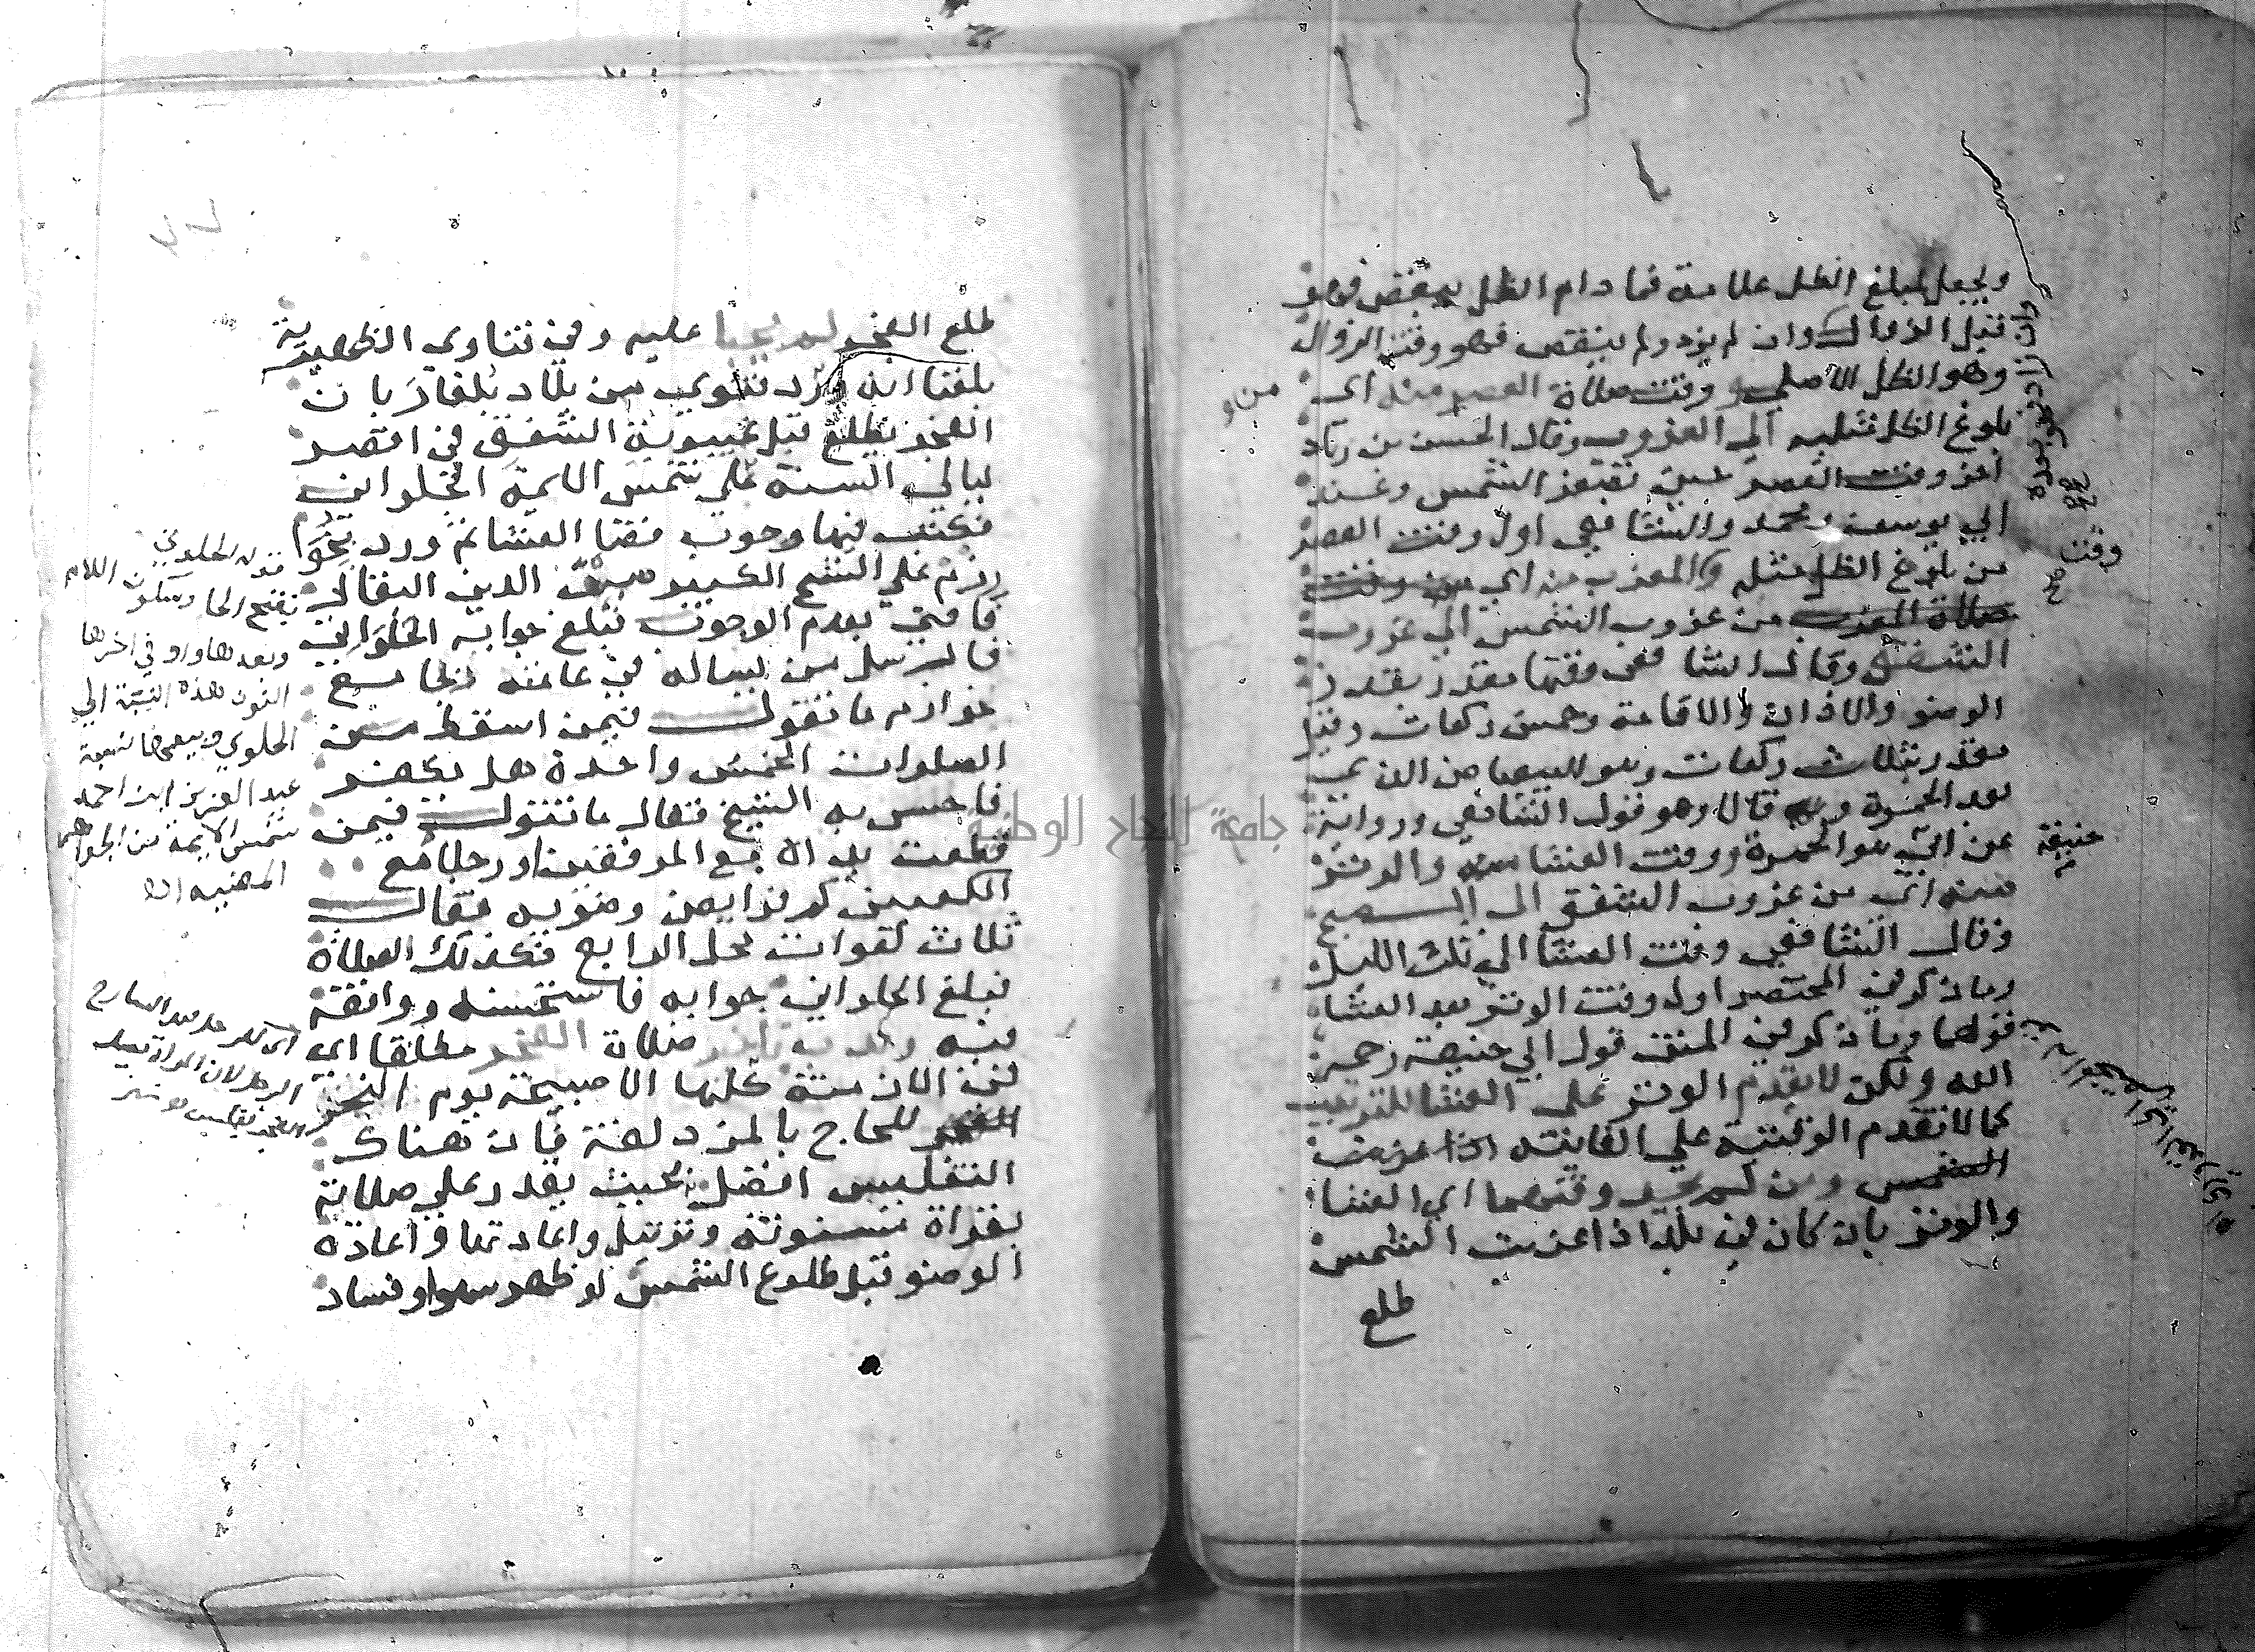 ويجعل لمبلغ الظل علامة فما دام الظل ينقص فهو
قبل الزوال وان لم يزد ولم ينقص فهو وقت الزوال
وهو الظل الاصلي ووقت صلاة العصر منه اي من
بلوغ الظل مثليه الي الغروب وقال الحسن بن زياد
اخر وقت العصر حين تصفر الشمس وعند
ابي يوسف ومحمد والشافعي اول وقت العصر
من بلوغ الظل مثله والمغرب منه اي من وقت
صلاة المغرب من غروب الشمس الي غروب
الشفق وقال الشافعي وقتها مقدر بقدر
الوضو والاذان والاقامة وخمس ركعات وقيل
مقدر بثلاث ركعات وهو البياض الذي
بعد الحمرة وقالا وهو قول الشافعي ورواية
عن ابي حنيفة هو الحمرة ووقت العشا والوتر
منه اي من غروب الشفق الى الصبح
وقال الشافعي وقت العشا الي ثلث الليل
وما ذكر في المختصر اول وقت الوتر بعد العشا
قولهما وما ذكر في المتن قول ابي حنيفة رحمه
الله ولكن لا يقدم الوتر علي العشا للترتيب
كما لا تقدم الوقتية علي الفايتة اذا غربت
الشمس ومن لم يجد وقتهما اي العشا
والوتر بان كان في بلد اذا غربت الشمس
طلع
وقت صح
حنيفة
طلع الفجر لم يجبا عليه وفي فتاوي الظهيرية
بلغنا انه ورد فتوي من بلاد بلغار بان
الفجر يطلع قبل غيبوبة الشفق في اقصر
ليالي السنة علي شمس الايمة الحلواني
فكتب فيها وجوب قضا العشا ثم ورد بخوا
رزم علي الشيخ الكبير سيف الدين البقالي
فافتي بعدم الوجوب فبلغ جوابه الحلواني
فارسل من يساله في عامته بجامع
خوارزم ما تقول فيمن اسقط من
الصلوات الخمس واحدة هل يكفر
فاحس به الشيخ فقال ما تقول فيمن
قطعت يداه مع المرفقين او رجلاه مع
الكعبين كم فرايض وضويه فقال
ثلاث لفوات محل الرابع فكذلك الصلاة
فبلغ الحلواني جوابه فاستحسنه ووافقه
فيه وندب تاخير صلاة الفجر مطلقا اي
في الازمنة كلها الا صبيحة يوم النحر
الفجر للحاج بالمزدلفة فان هناك
التغليس افضل بحيث يقدر علي صلاته
بقراة مسنونة وترتيل واعادتها واعادة
الوضو قبل طلوع الشمس لو ظهر سهوا وفساد
قوله الحلوني
بفتح الحا وسكون اللام
وبعدها واو في اخرها
النون هذه النسبة الي
الحلوي وبيعها نسبة
عبد العزيز ابن احمد
شمس الايمة من الجواهر
المضيه اه